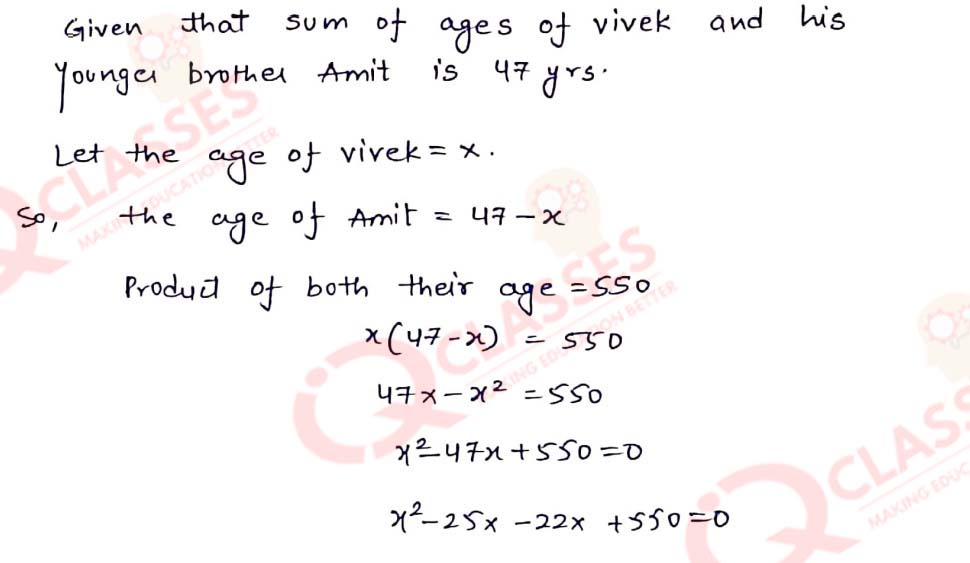 Given that sum of ages of vivek and his
younger brother Amit is 47 yrs.
Let the age of vivek = x.
So, the age of Amit = 47 - x
Product of both their age = 550
x(47 - x) = 550
47x - x² = 550
x² - 47x + 550 = 0
x² - 25x - 22x + 550 = 0
QCLASSES
MAKING EDUCATION BETTER
QCLASSES
MAKING EDUCATION BETTER
QCLASS
MAKING EDUC